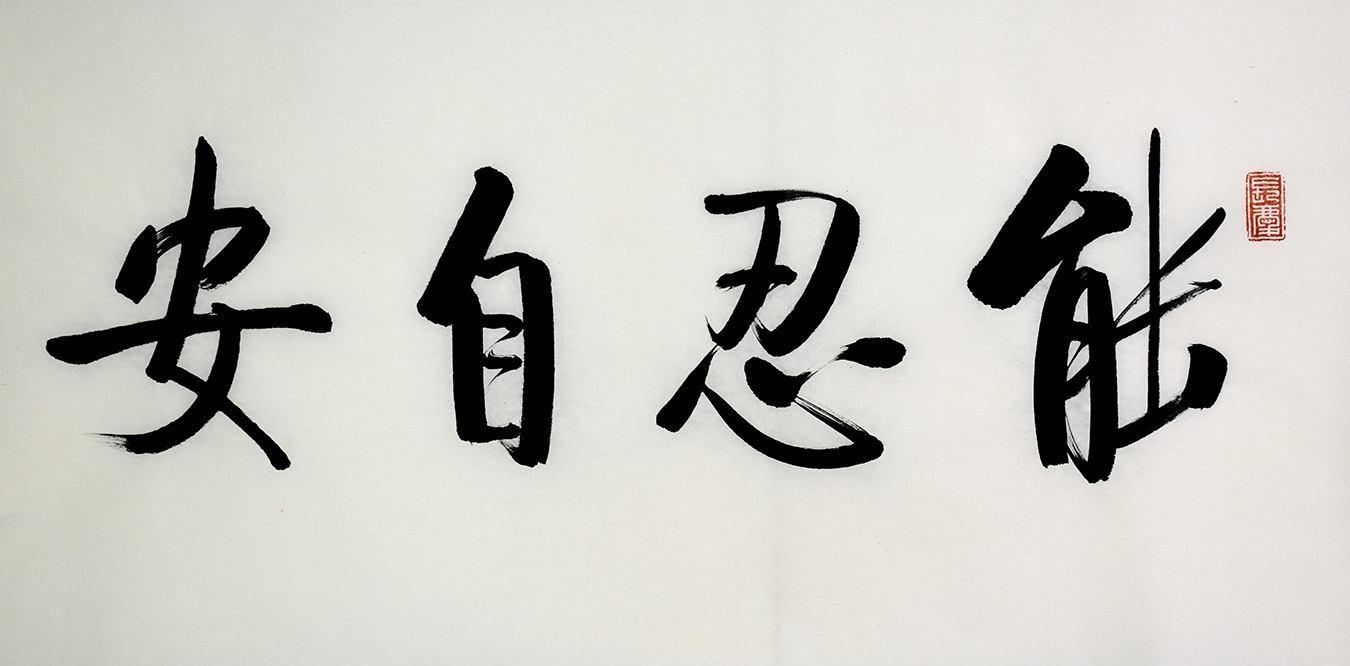 能忍自安